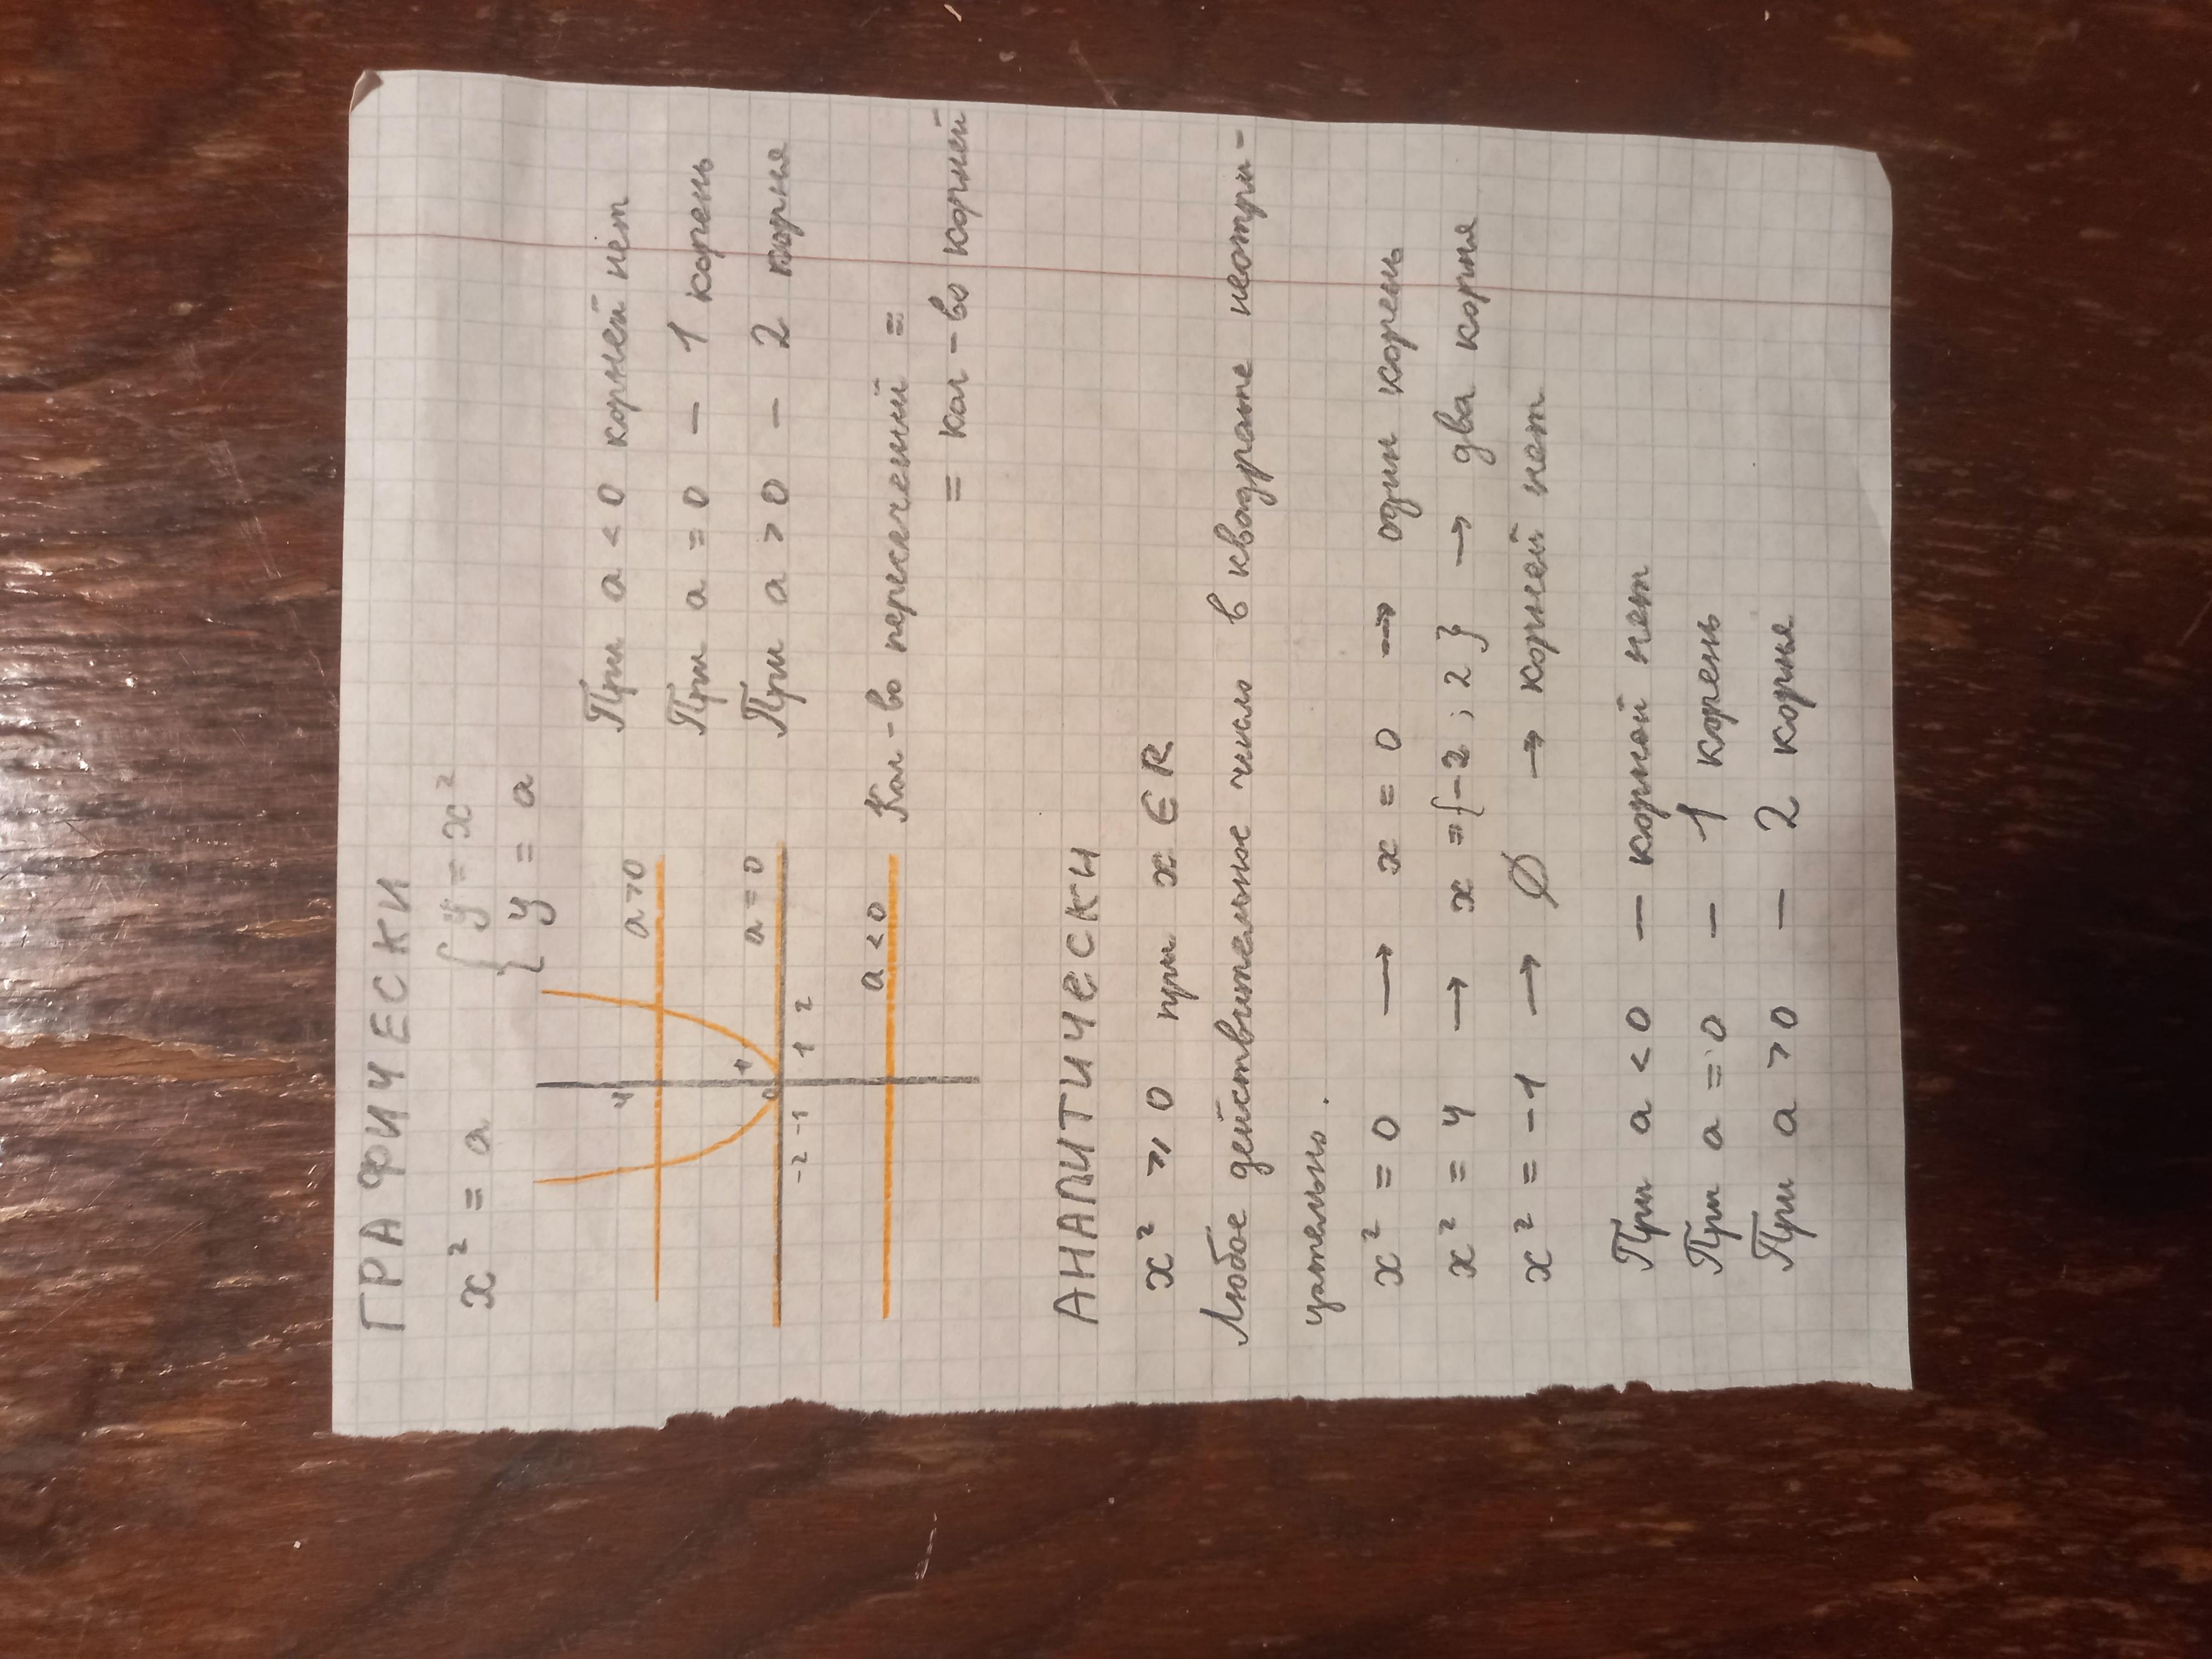 ГРАФИЧЕСКИ
x² = a
{ y = x²
{ y = a
a>0
4
1
a=0
0
-2 -1 1 2
a<0
При a<0 корней нет
При a=0 – 1 корень
При a>0 – 2 корня
Кол-во пересечений =
= кол-во корней
АНАЛИТИЧЕСКИ
x² ⩾ 0 при x ∈ R
Любое действительное число в квадрате неотри-
цательно.
x² = 0 → x = 0 → один корень
x² = 4 → x = {-2 ; 2} → два корня
x² = -1 → ∅ → корней нет
При a < 0 – корней нет
При a = 0 – 1 корень
При a > 0 – 2 корня